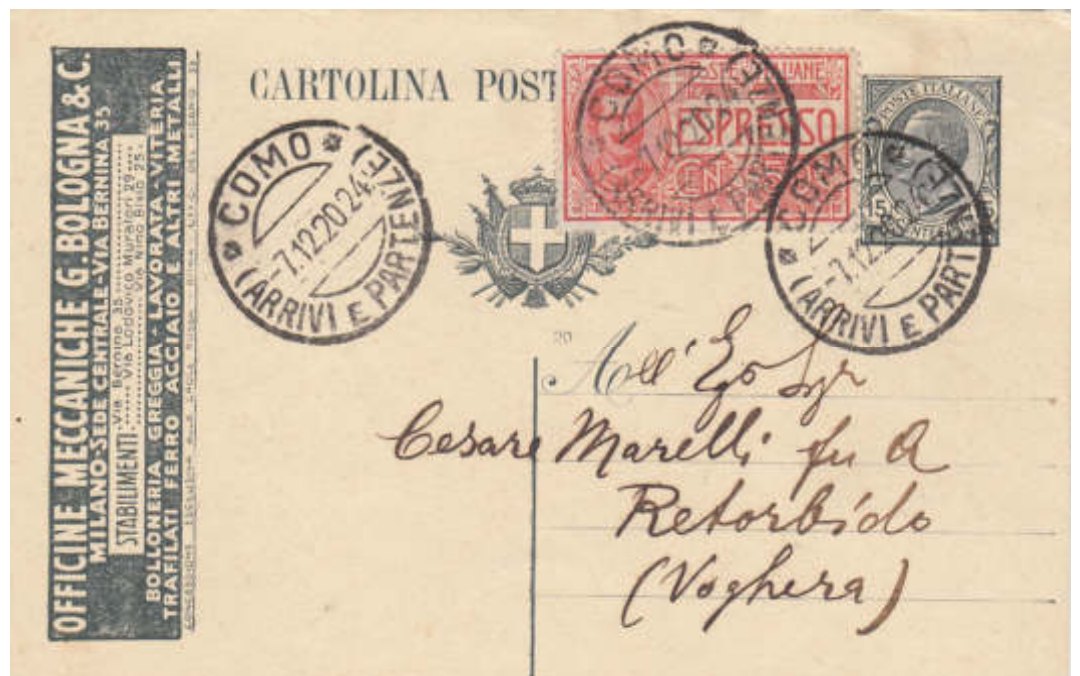 OFFICINE MECCANICHE G. BOLOGNA & C.
MILANO-SEDE CENTRALE-VIA BERNINA 35
STABILIMENTI Via Bernina 35
Via Lodovico Muratori 29
Via Nino Bixio 25
BOLLONERIA GREGGIA-LAVORATA-VITERIA
TRAFILATI FERRO ACCIAIO E ALTRI METALLI
CARTOLINA POST
COMO
-7.12.20.24
(ARRIVI E PARTENZE)
COMO
7.12.20.24
ARRIVI E
ESPRESSO
CENT
POSTE ITALIANE
15
COMO
-7.12
(ARRIVI E PARTENZE)
20
All' Eg Sigr
Cesare Marelli fu A
Retorbido
(Voghera)